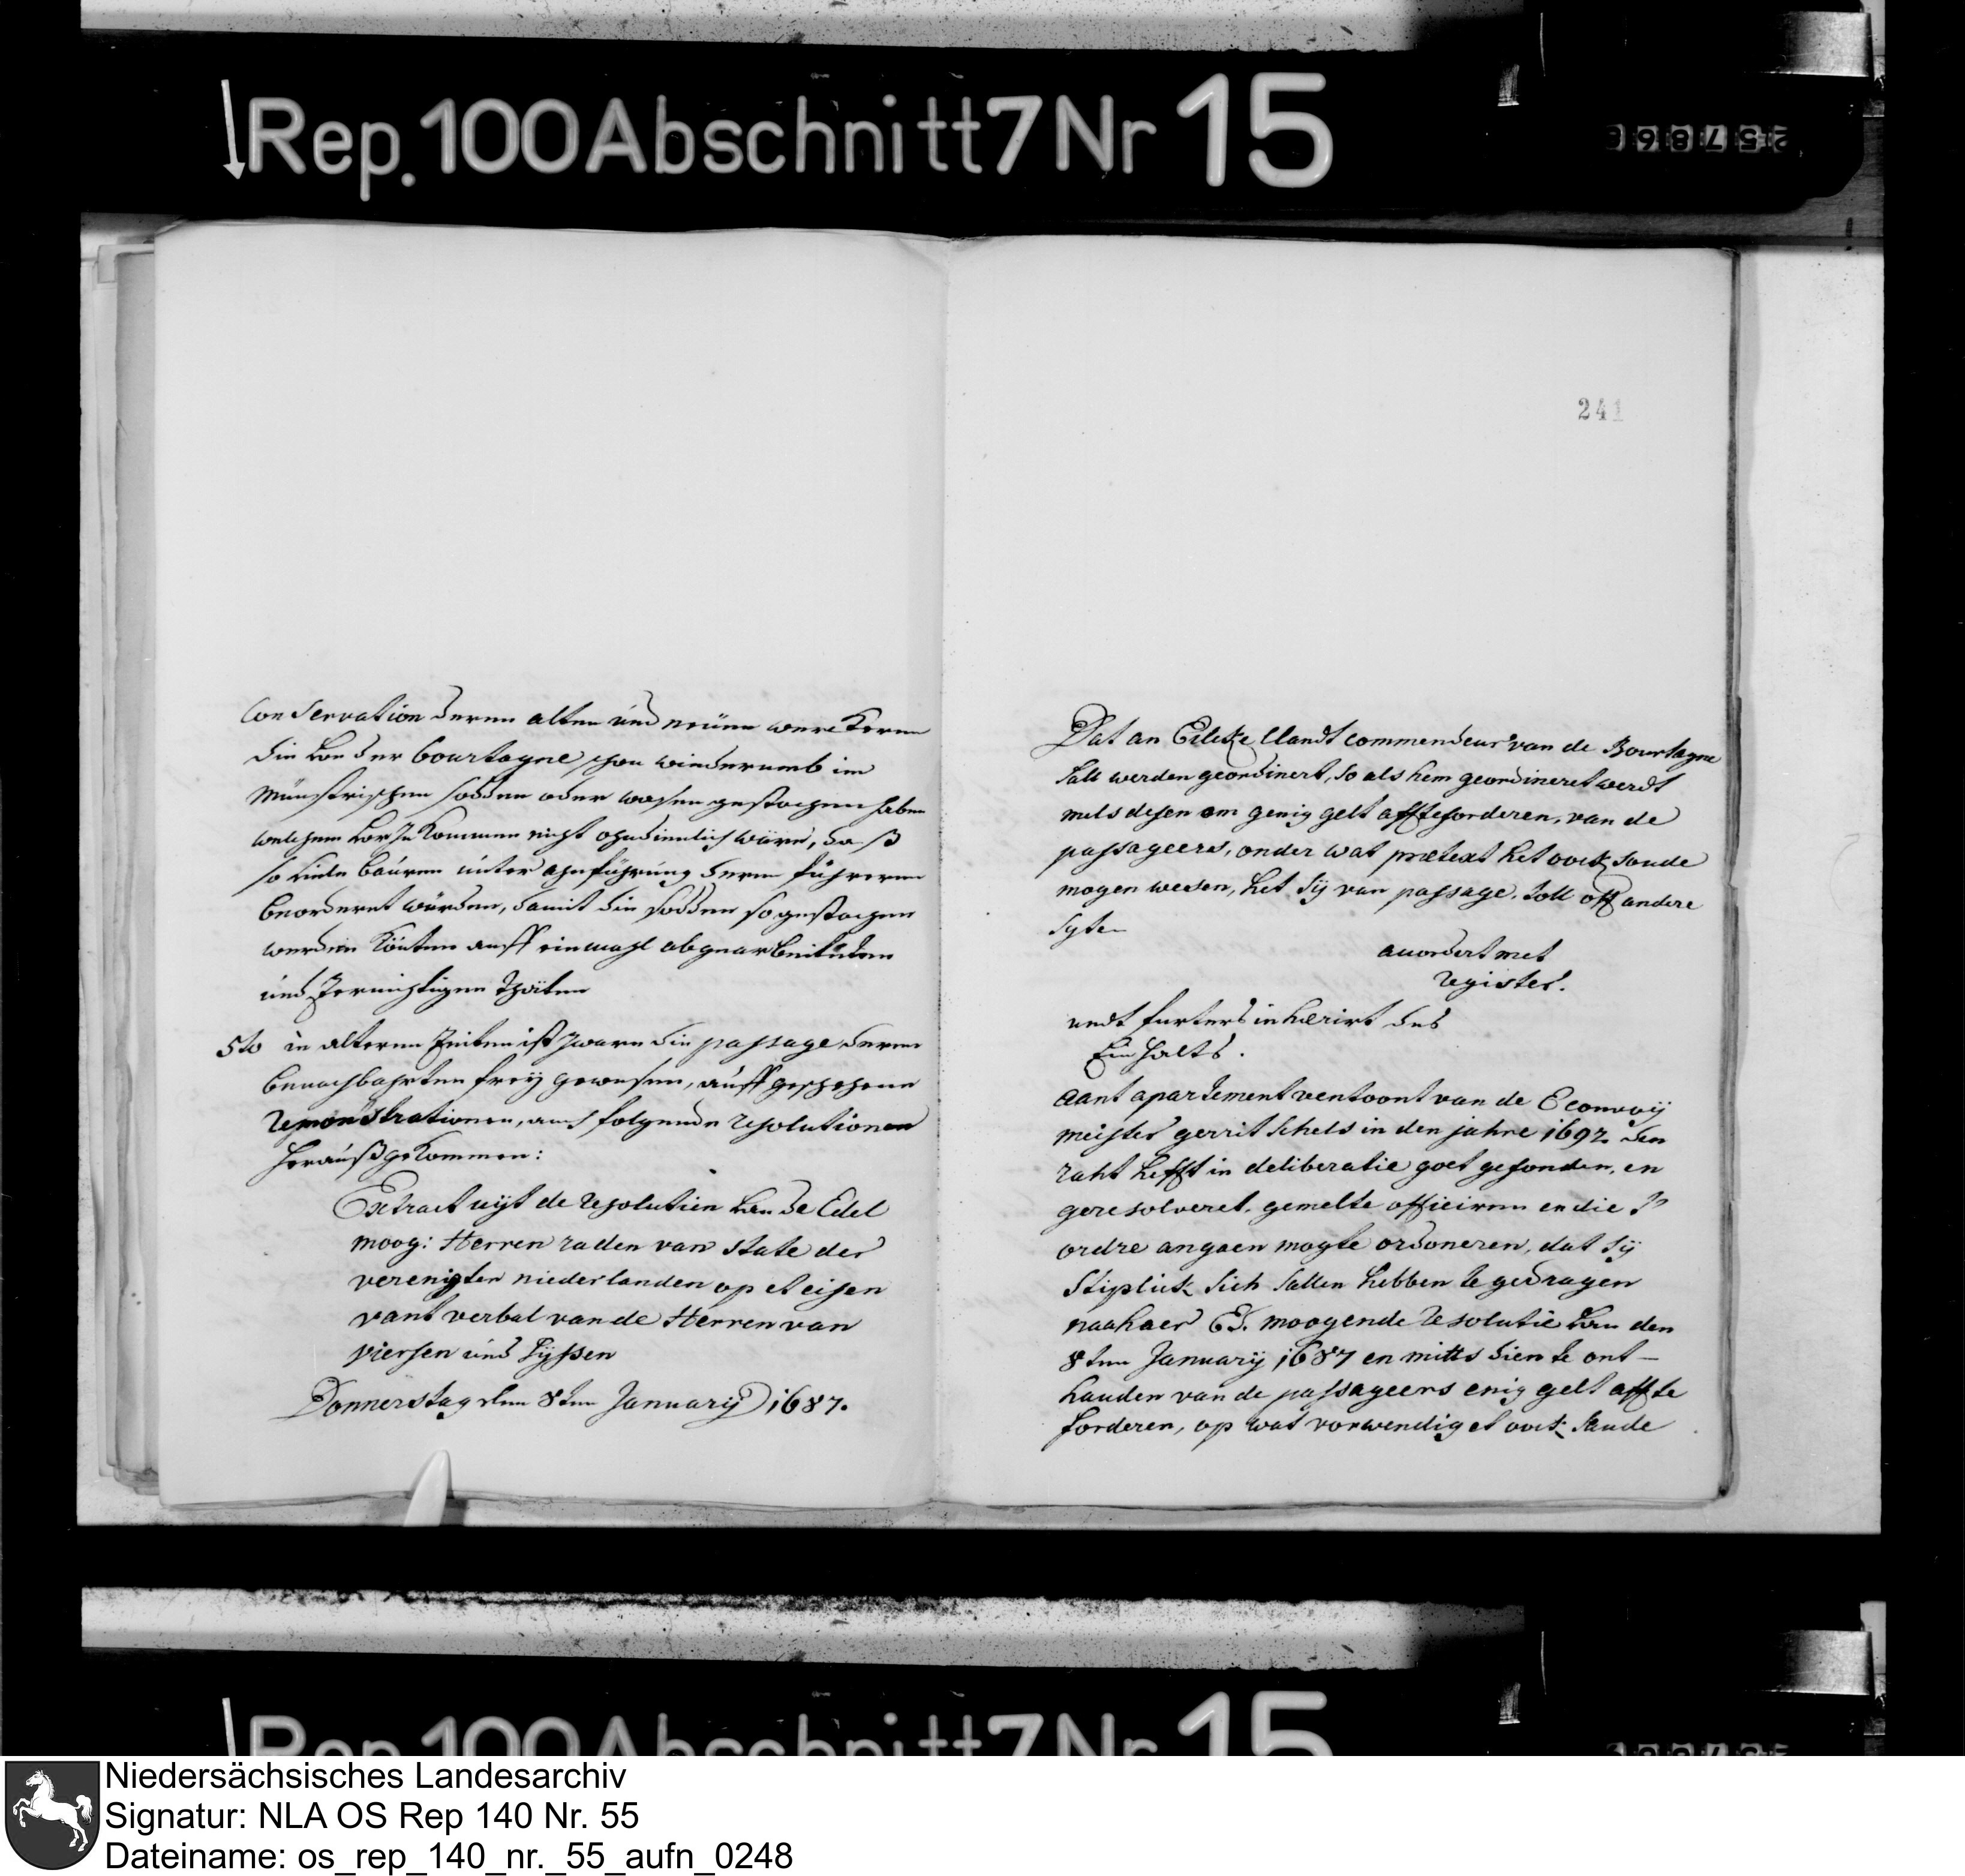 Rep. 100 Abschnitt 7 Nr 15
241
Conservation deren alten und neüen wercKeren
die von der bourtagne schon wiederumb im
Münstrischen sodden oder wasen gestochen haben
welchem vorzuKommen nicht ohndienlich wäre, daß
so viele bauren unter ahnführung deren führeren
beorderet würden, damit die sodden so gestochen
werden Könten auff einmahl
und zernichtigen thäten
5to in alteren Zeiten ist zwarn die passage deren
benachbahrten freÿ gewesen, auff geschehene
remonstrationen, auch folgende resolutionen
heraußgeKommen:
Extract uÿt de resolutien van de Edel
moog: Herren raden van state der
verenigten niederlanden op et eisen
vant verbal van de Herren van
viersen und
Donnerstag den 8ten Januarÿ 1687.
Dat an llandt commendeur van de Bourtagne
sall werden geordinert, so als hem geordineret werdt
mits desen om genig gelt aff te forderen, van de
passageers, onder wat prætext het oock soude
mogen wesen, het sÿ van passage, toll off andere
auordert met
register.
undt furters inhærirt des
Einhalts.
aant apartement ventoont van de Econvoÿ
meister gerrit schels in den jahre 1692 den
raht hefft in deliberatie goet gefonden, en
geresolveret, gemelte officiren en die
ordre angaen mogte ordoneren, dat sÿ
stiplick sich sallen hebben te gedragen
naa haer Ed. moogende resolutie van den
8ten Januarÿ 1687 en mitts dien te ont-
hauden van de passageers enig gelt aff te
forderen, op wat vorwendig et oock saude
Niedersächsisches Landesarchiv
Signatur: NLA OS Rep 140 Nr. 55
Dateiname: os_rep_140_nr._55_aufn_0248